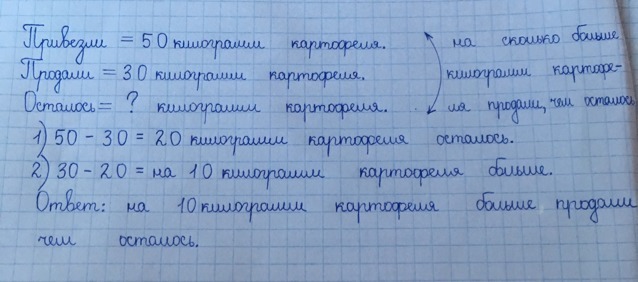 Привезли = 50 килограмм картофеля. на сколько больше
Продали = 30 килограмм картофеля. килограмм картофе-
Осталось = ? килограмм картофеля. ля продали, чем осталось
1) 50 - 30 = 20 килограмм картофеля осталось.
2) 30 - 20 = на 10 килограмм картофеля больше.
Ответ: на 10 килограмм картофеля больше продали
чем осталось.